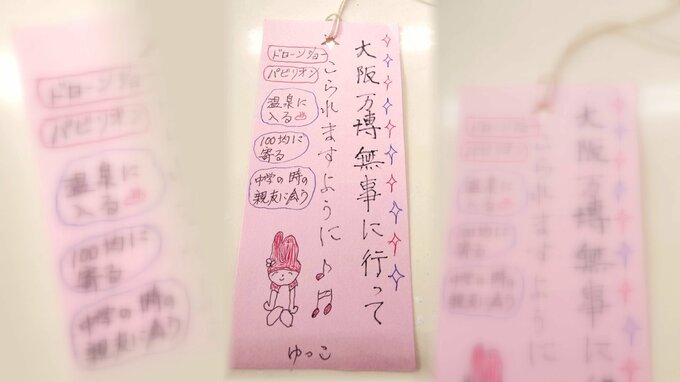 大阪万博無事に行って
こられますように
ドローンショー
パビリオン
温泉に
入る
100均に
寄る
中学の時の
親友に会う
ゆっこ